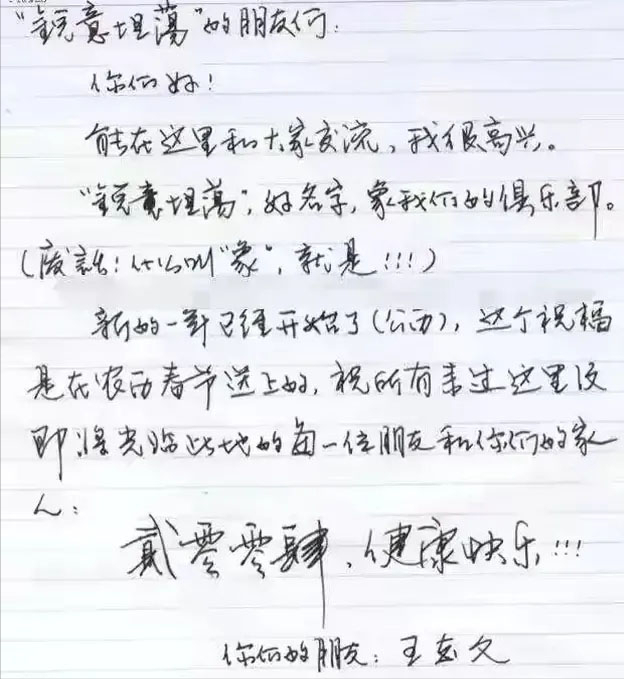 “锐意坦荡”的朋友们：
你们好！
能在这里和大家交流，我很高兴。
“锐意坦荡”，好名字，象我们的俱乐部。
（废话！什么叫“象”，就是！！！）
新的一年已经开始了（公历），这个祝福
是在农历春节送上的，祝所有来过这里及
即将光临此地的每一位朋友和你们的家
人：
贰零零肆，健康快乐！！！
你们的朋友：王志文